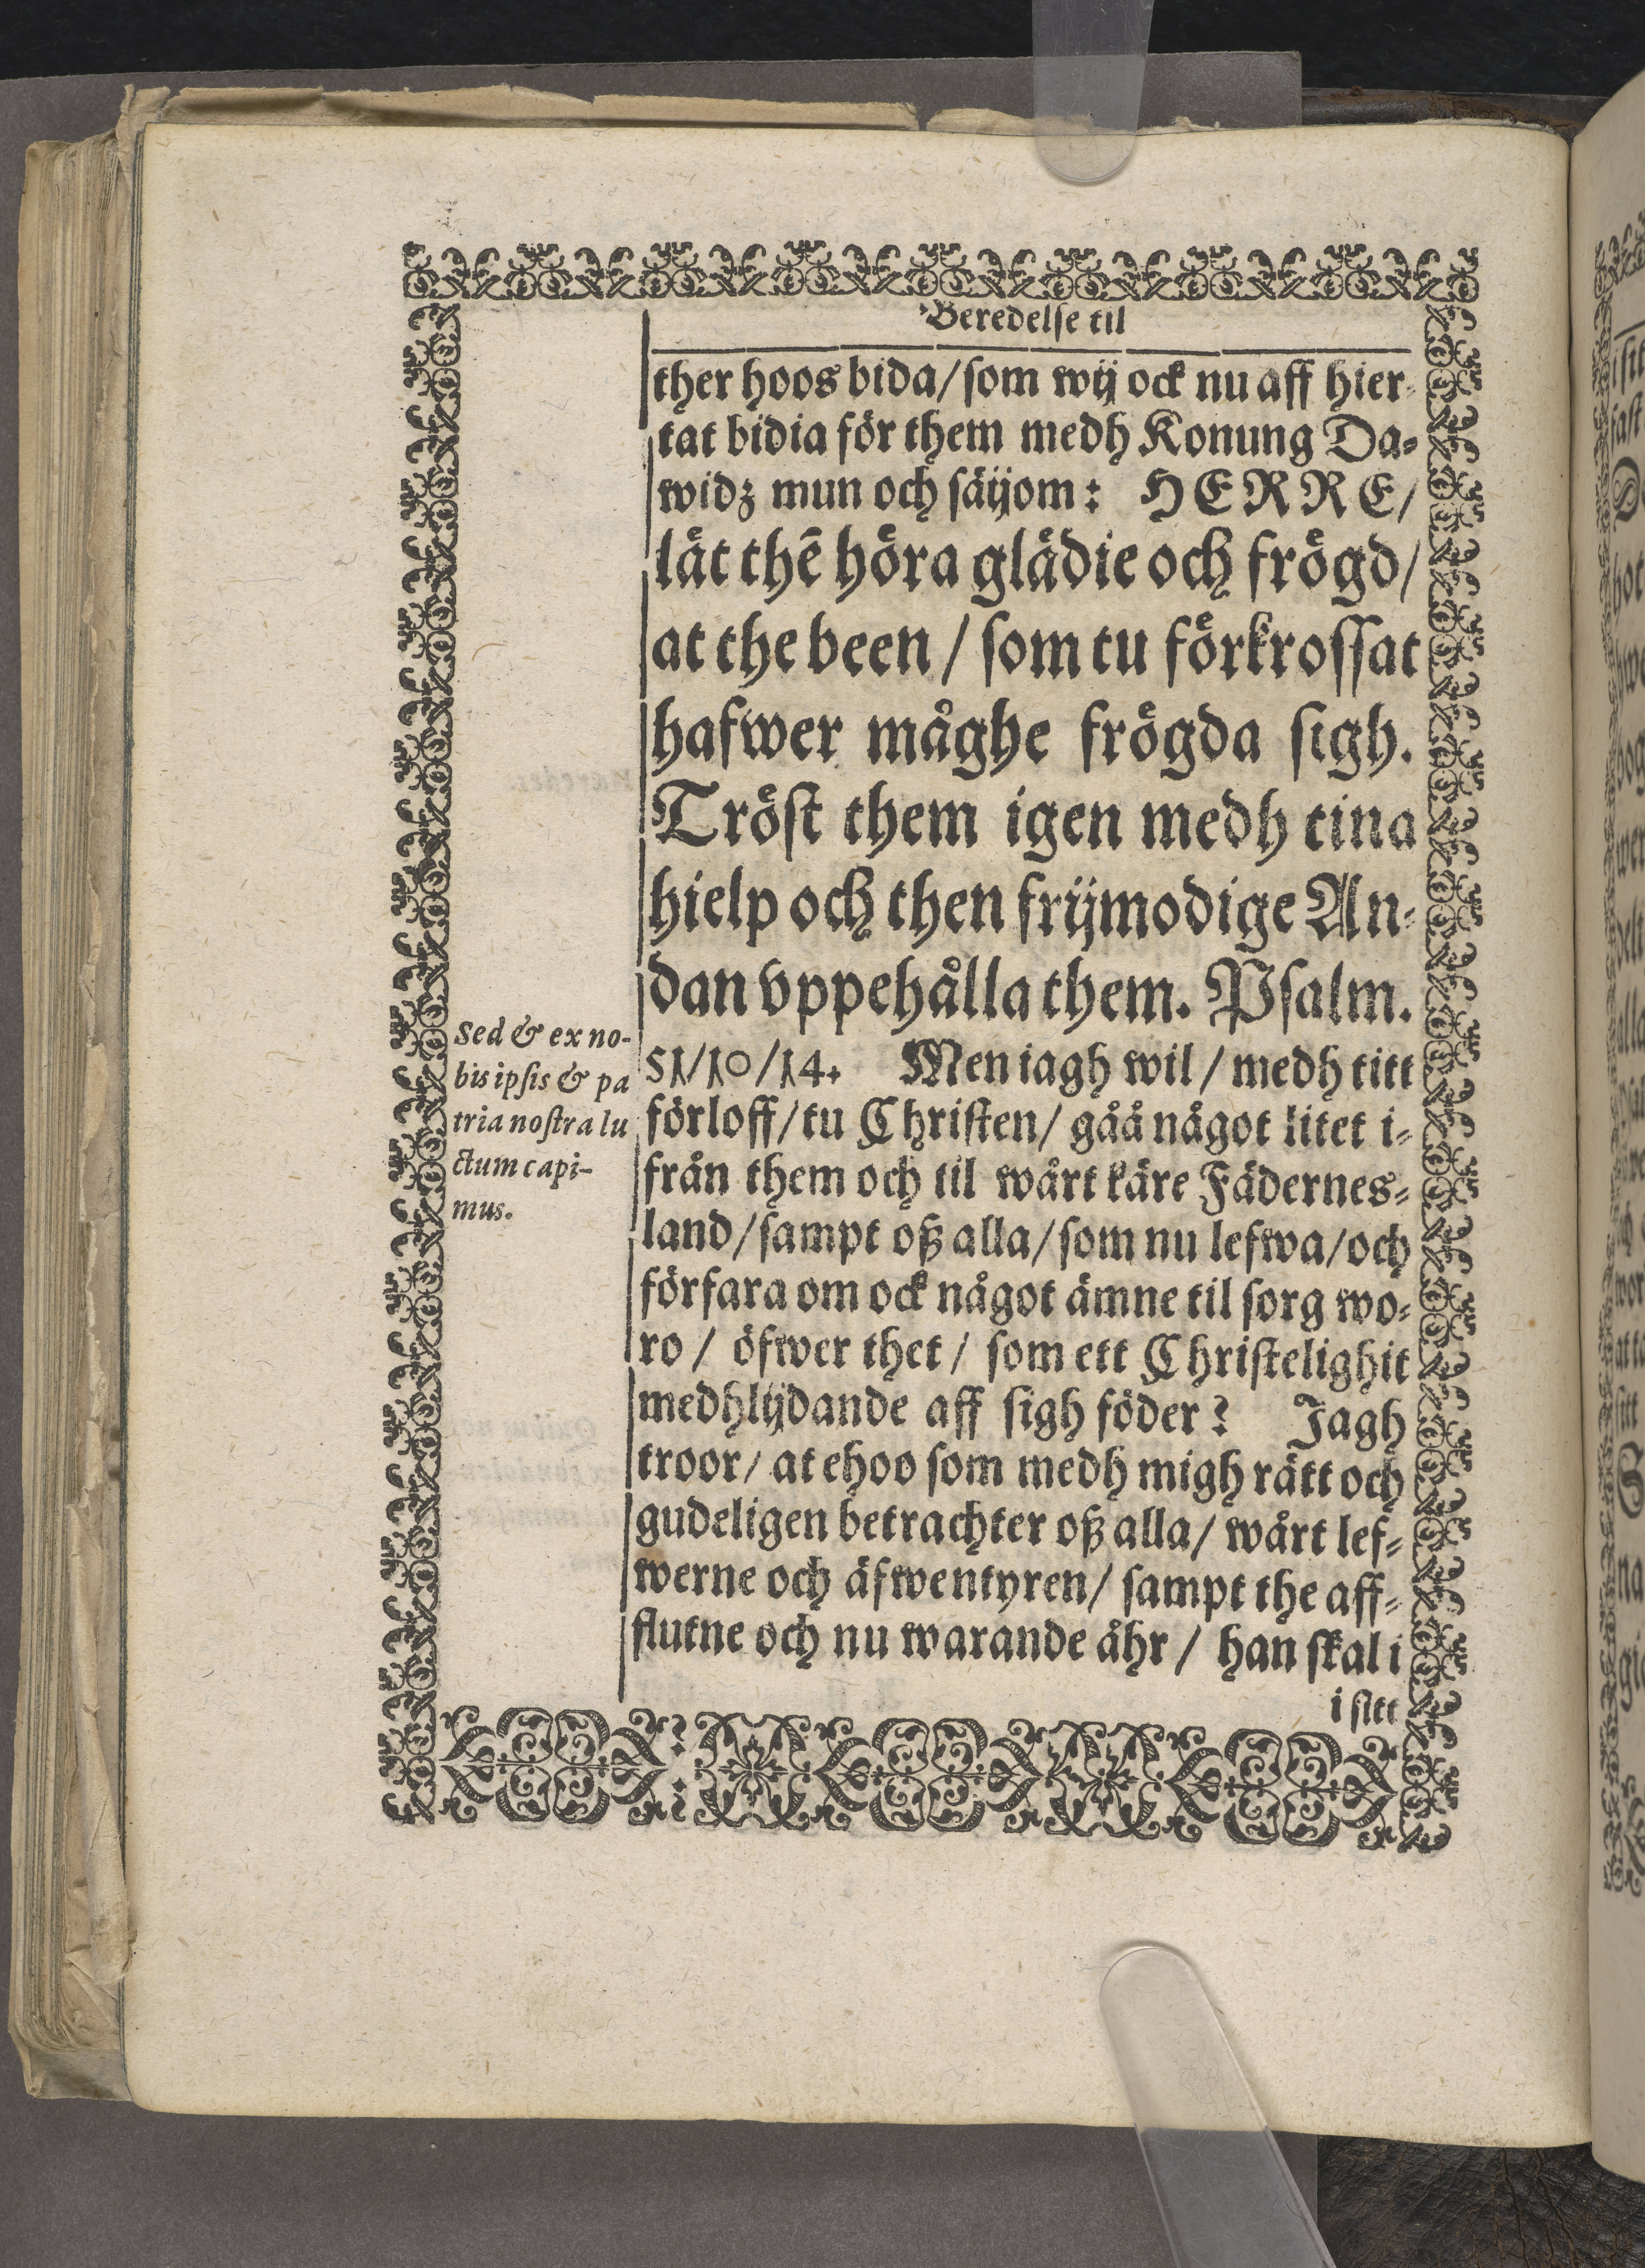 Beredelſe til
ther hoos bida/ ſom wij ock nu aff hier-
tat bidia för them medh Konung Da-
widz mun och ſäijom: HERRE/
lät thē höra glädie och frögd/
at the been/ ſom tu förkroſſat
hafwer måghe frögda ſigh.
Tröſt them igen medh tina
hielp och then frijmodige An-
dan vppehålla them. Pſalm.
51/10/14. Men iagh wil/ medh titt
förloff/ tu Chriſten/ gåå något litet i-
från them och til wårt käre Fädernes-
land/ ſampt oß alla/ ſom nu lefwa/ och
förfara om ock något ämne til ſorg wo-
ro/ öfwer thet/ ſom ett Chriſtelighit
medhlijdande aff ſigh föder? Jagh
troor/ at ehoo ſom medh migh rätt och
gudeligen betrachter oß alla/ wårt lef-
werne och äfwentyren/ ſampt the aff-
flutne och nu warande åhr/ han ſkal i
i ſitt
Sed & ex no-
bis ipſis & pa
tria noſtra lu
ctum capi-
mus.